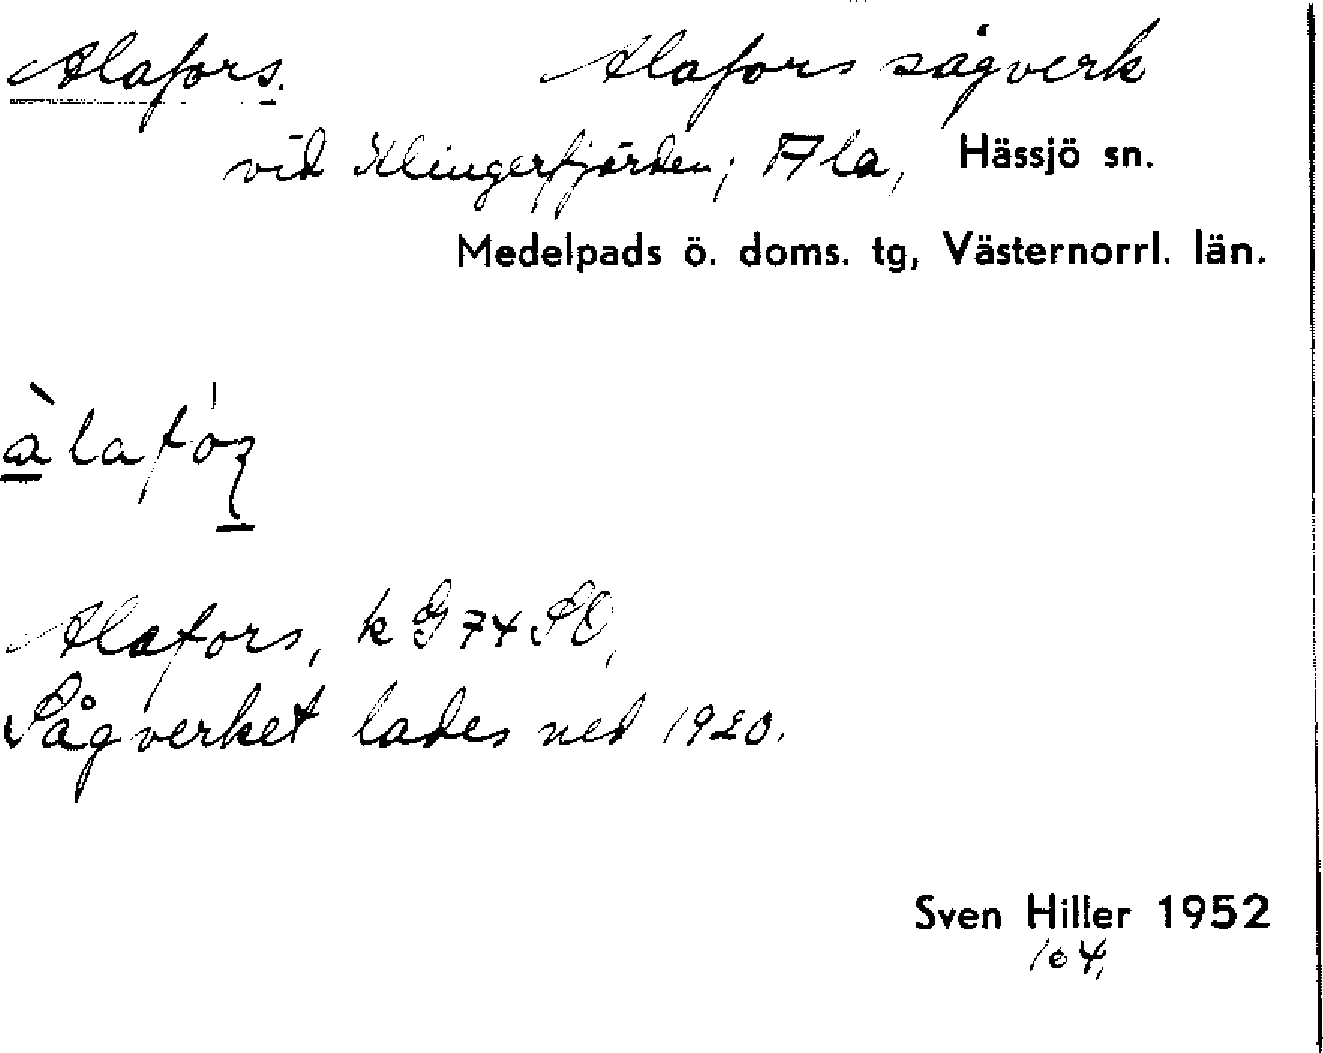 Alafors. Alafors sågverk
vid Klingerfjärden; Ala, Hässjö sn.
Medelpads ö. doms. tg, Västernorrl. län.
àlafo̍ʐ
Alafors, k G74 SO,
Sågverket lades ned 1920.
Sven Hiller 1952
104,